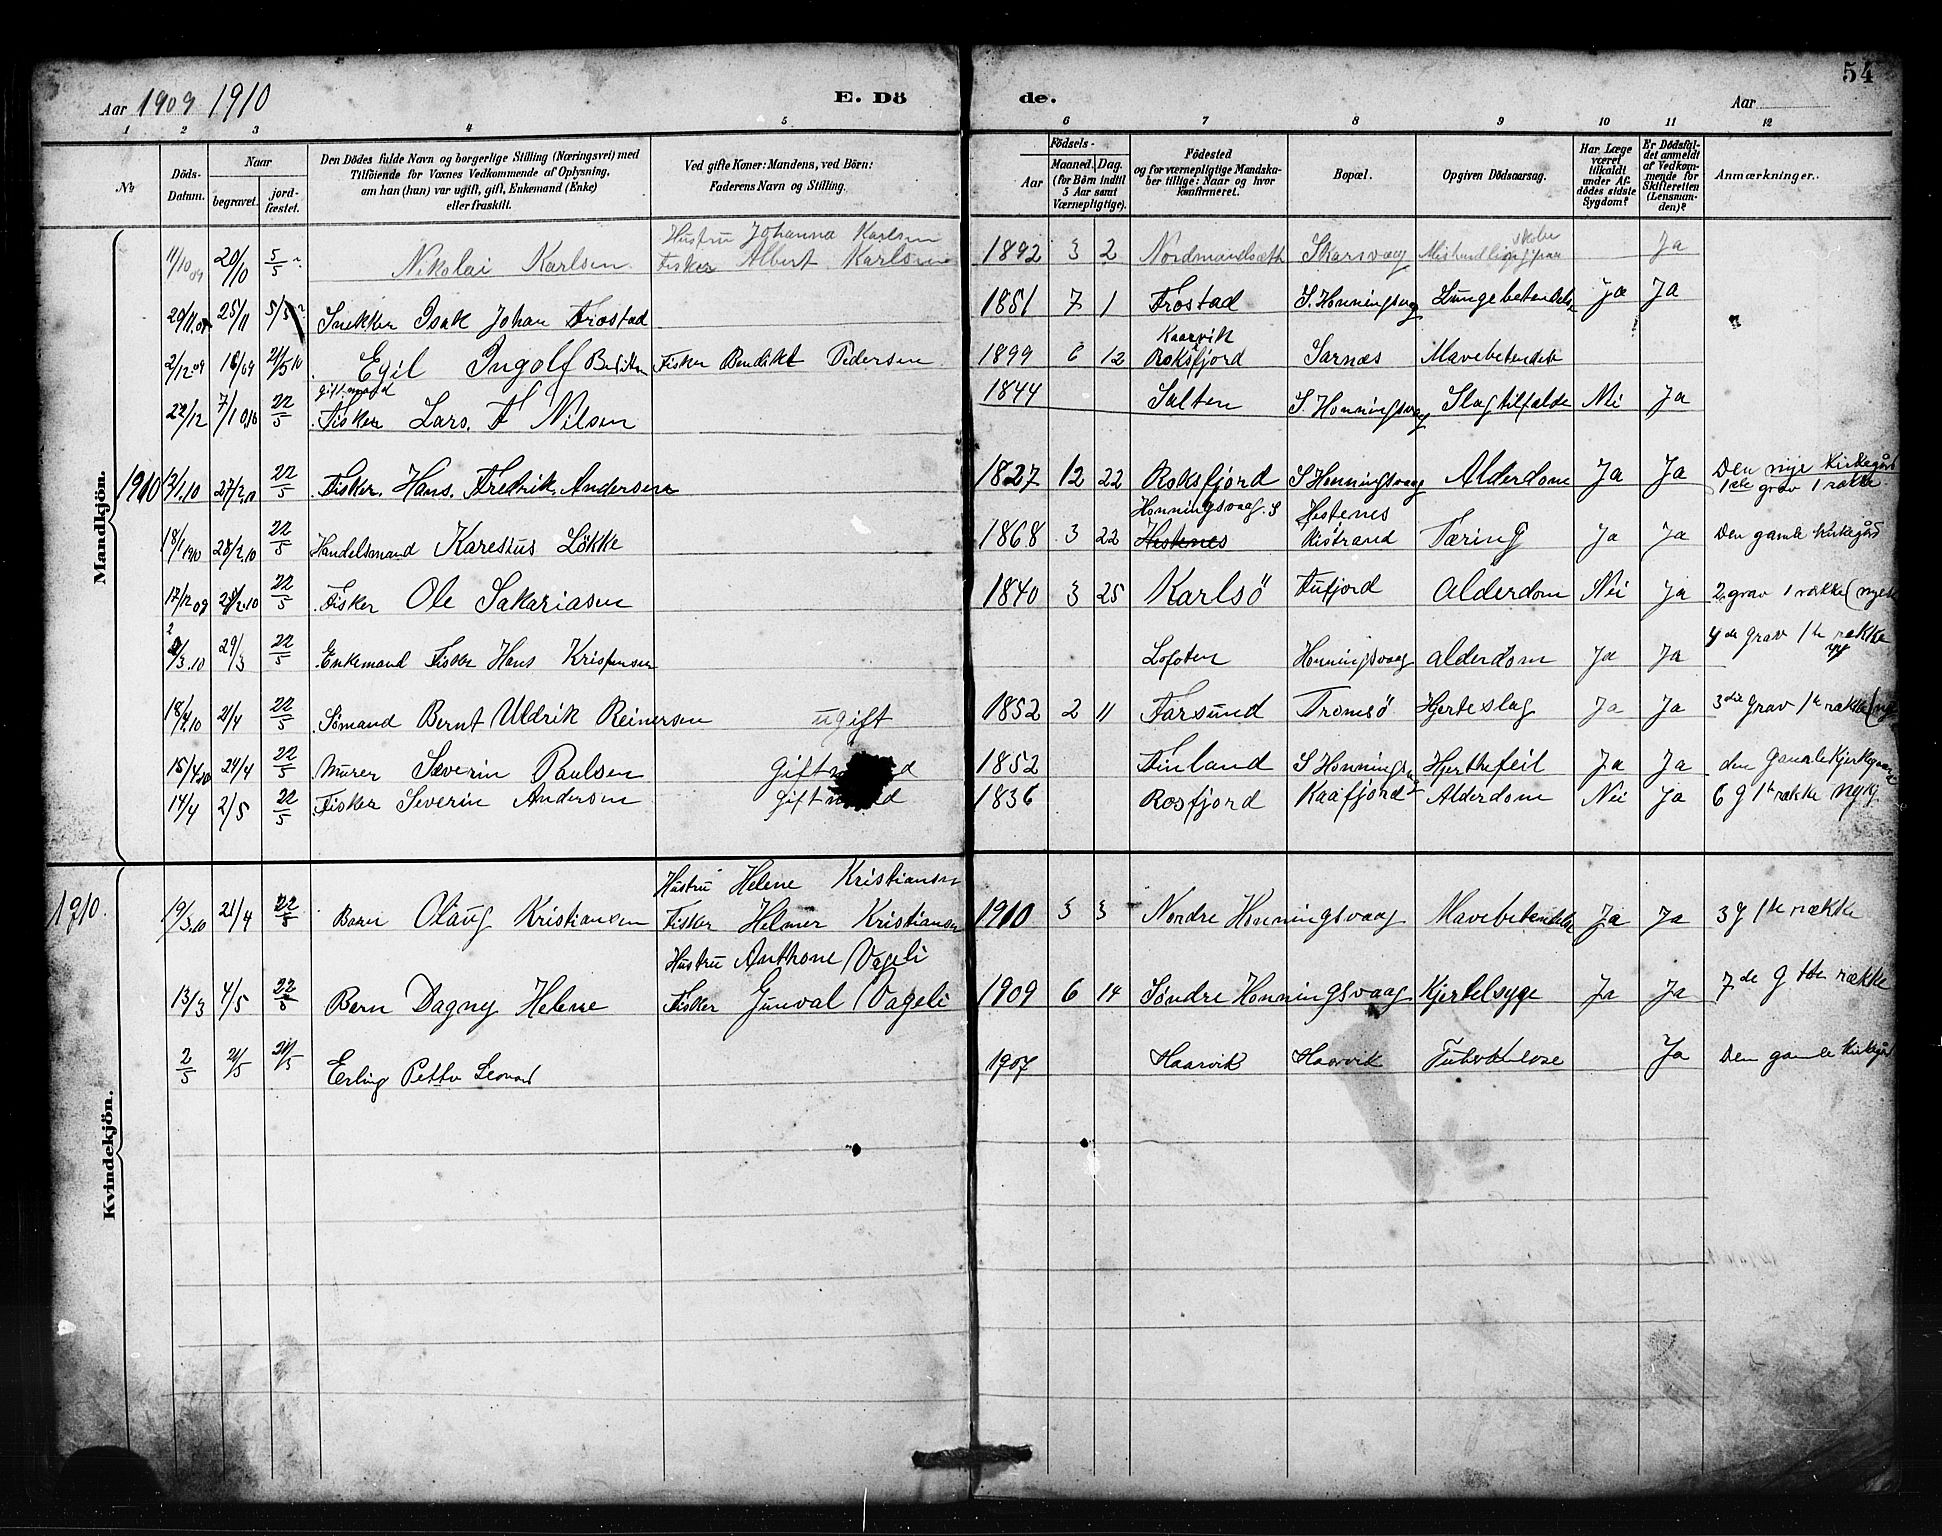 54
Aar 1909 1910 E. Dö de. Aar
1 2 3 4 5 6 7 8 9 10 11 12
No
Döds-Datum.
Naar begravet. jordfæstet.
Den Dödes fulde Navn og borgerlige Stilling (Næringsvei) med
Tilföiende for Voxnes Vedkommende af Oplysning,
om han (hun) var ugift, gift, Enkemand (Enke)
eller fraskilt.
Ved gifte Koner: Mandens, ved Börn:
Faderens Navn og Stilling.
Födsels-
Aar Maaned. Dag.
(for Börn indtil
5 Aar samt
Værnepligtige).
Födested
og for værnepligtige Mandskaber tillige: Naar og hvor
konfirmeret.
Bopæl.
Opgiven Dödsaarsag.
Har Læge
været
tilkaldt
under Afdödes sidste
Sygdom?
Er Dödsfaldet anmeldt
af Vedkommende for
Skifteretten
(Lensmanden)?
Anmærkninger.
Mandkjön.
Hustru Johanna Karlsen
11/10 09 20/10 5/5 Nikolai Karlsen Fisker Albert Karlsen 1892 3 2 Nordmandsæth Skarsvaag Ja
25/11 Snekker Isak Johan Frostad 1851 7 1 Frostad S. Honningsvaag Lungebetændelse Ja Ja
Kaarvik
2/12 09 16/09 21/5 10 Egil Ingolf Fisker Bendikt Pedersen 1899 6 12 Roksfjord Sarnæs Mavebetændelse
gift mand
22/12 7/1 22/5 Fisker Lars. F Nilsen 1844 Salten S. Honningsvaag Slagtilfælde Nei Ja
1910 27/2 10 22/5 Fisker. Hans. Fredrik Andersen 1827 12 22 Roksfjord S Honningsvaag Alderdom Ja Ja Den nye Kirkegård
1ste grav 1 række
Honningsvaag. S Hestenes
18/1 1910 28/2 10 22/5 Handelsmand Karesius Lökke 1868 3 22 Hestenes Tæring Ja Ja Den gamle Kirkegård
17/12 09 22/5 Fisker Ole Sakariasen 1840 3 25 Karlsö Tufjord Alderdom Nei Ja 2 grav 1 række
29/3 22/5 Enkemand Fisker Hans Kristensen Lofoten Honningsvaag Alderdom Ja Ja 4de grav 1te række
18/4 10 21/4 22/5 Sömand Bernt Uldrik Reinersen ugift 1852 2 11 Farsund Tromsö Hjerteslag Ja Ja 3die Grav 1te række
15/4 10 24/4 22/5 Murer Severin Paulsen 1852 Finland S Honningsvaag Hjertefeil Ja Ja den Gamle Kjerkegaard
14/4 2/5 22/5 Fisker Severin Andersen 1836 Rosfjord Kaafjord Alderdom Nei Ja 6 G 1te række
Kvindekjön.
Hustru Helene Kristiansen
1910. 19/3 10 21/4 22/5 Barn Olaug Kristiansen Fisker Helmer Kristiansen 1910 3 3 Nordre Honningsvaag Mavebetændelse Ja Ja 3 G 1te række
Hustru Anthone Vageli
13/3 4/5 22/5 Barn Dagny Helene Fisker Gunval Vageli 1909 6 14 Søndre Honningsvaag Kjertelsyge Ja Ja 7de G 1te række
2/5 21/5 Erling Petter Leonard 1907 Kaarvik Kaarvik Ja Den gamle Kirkegård